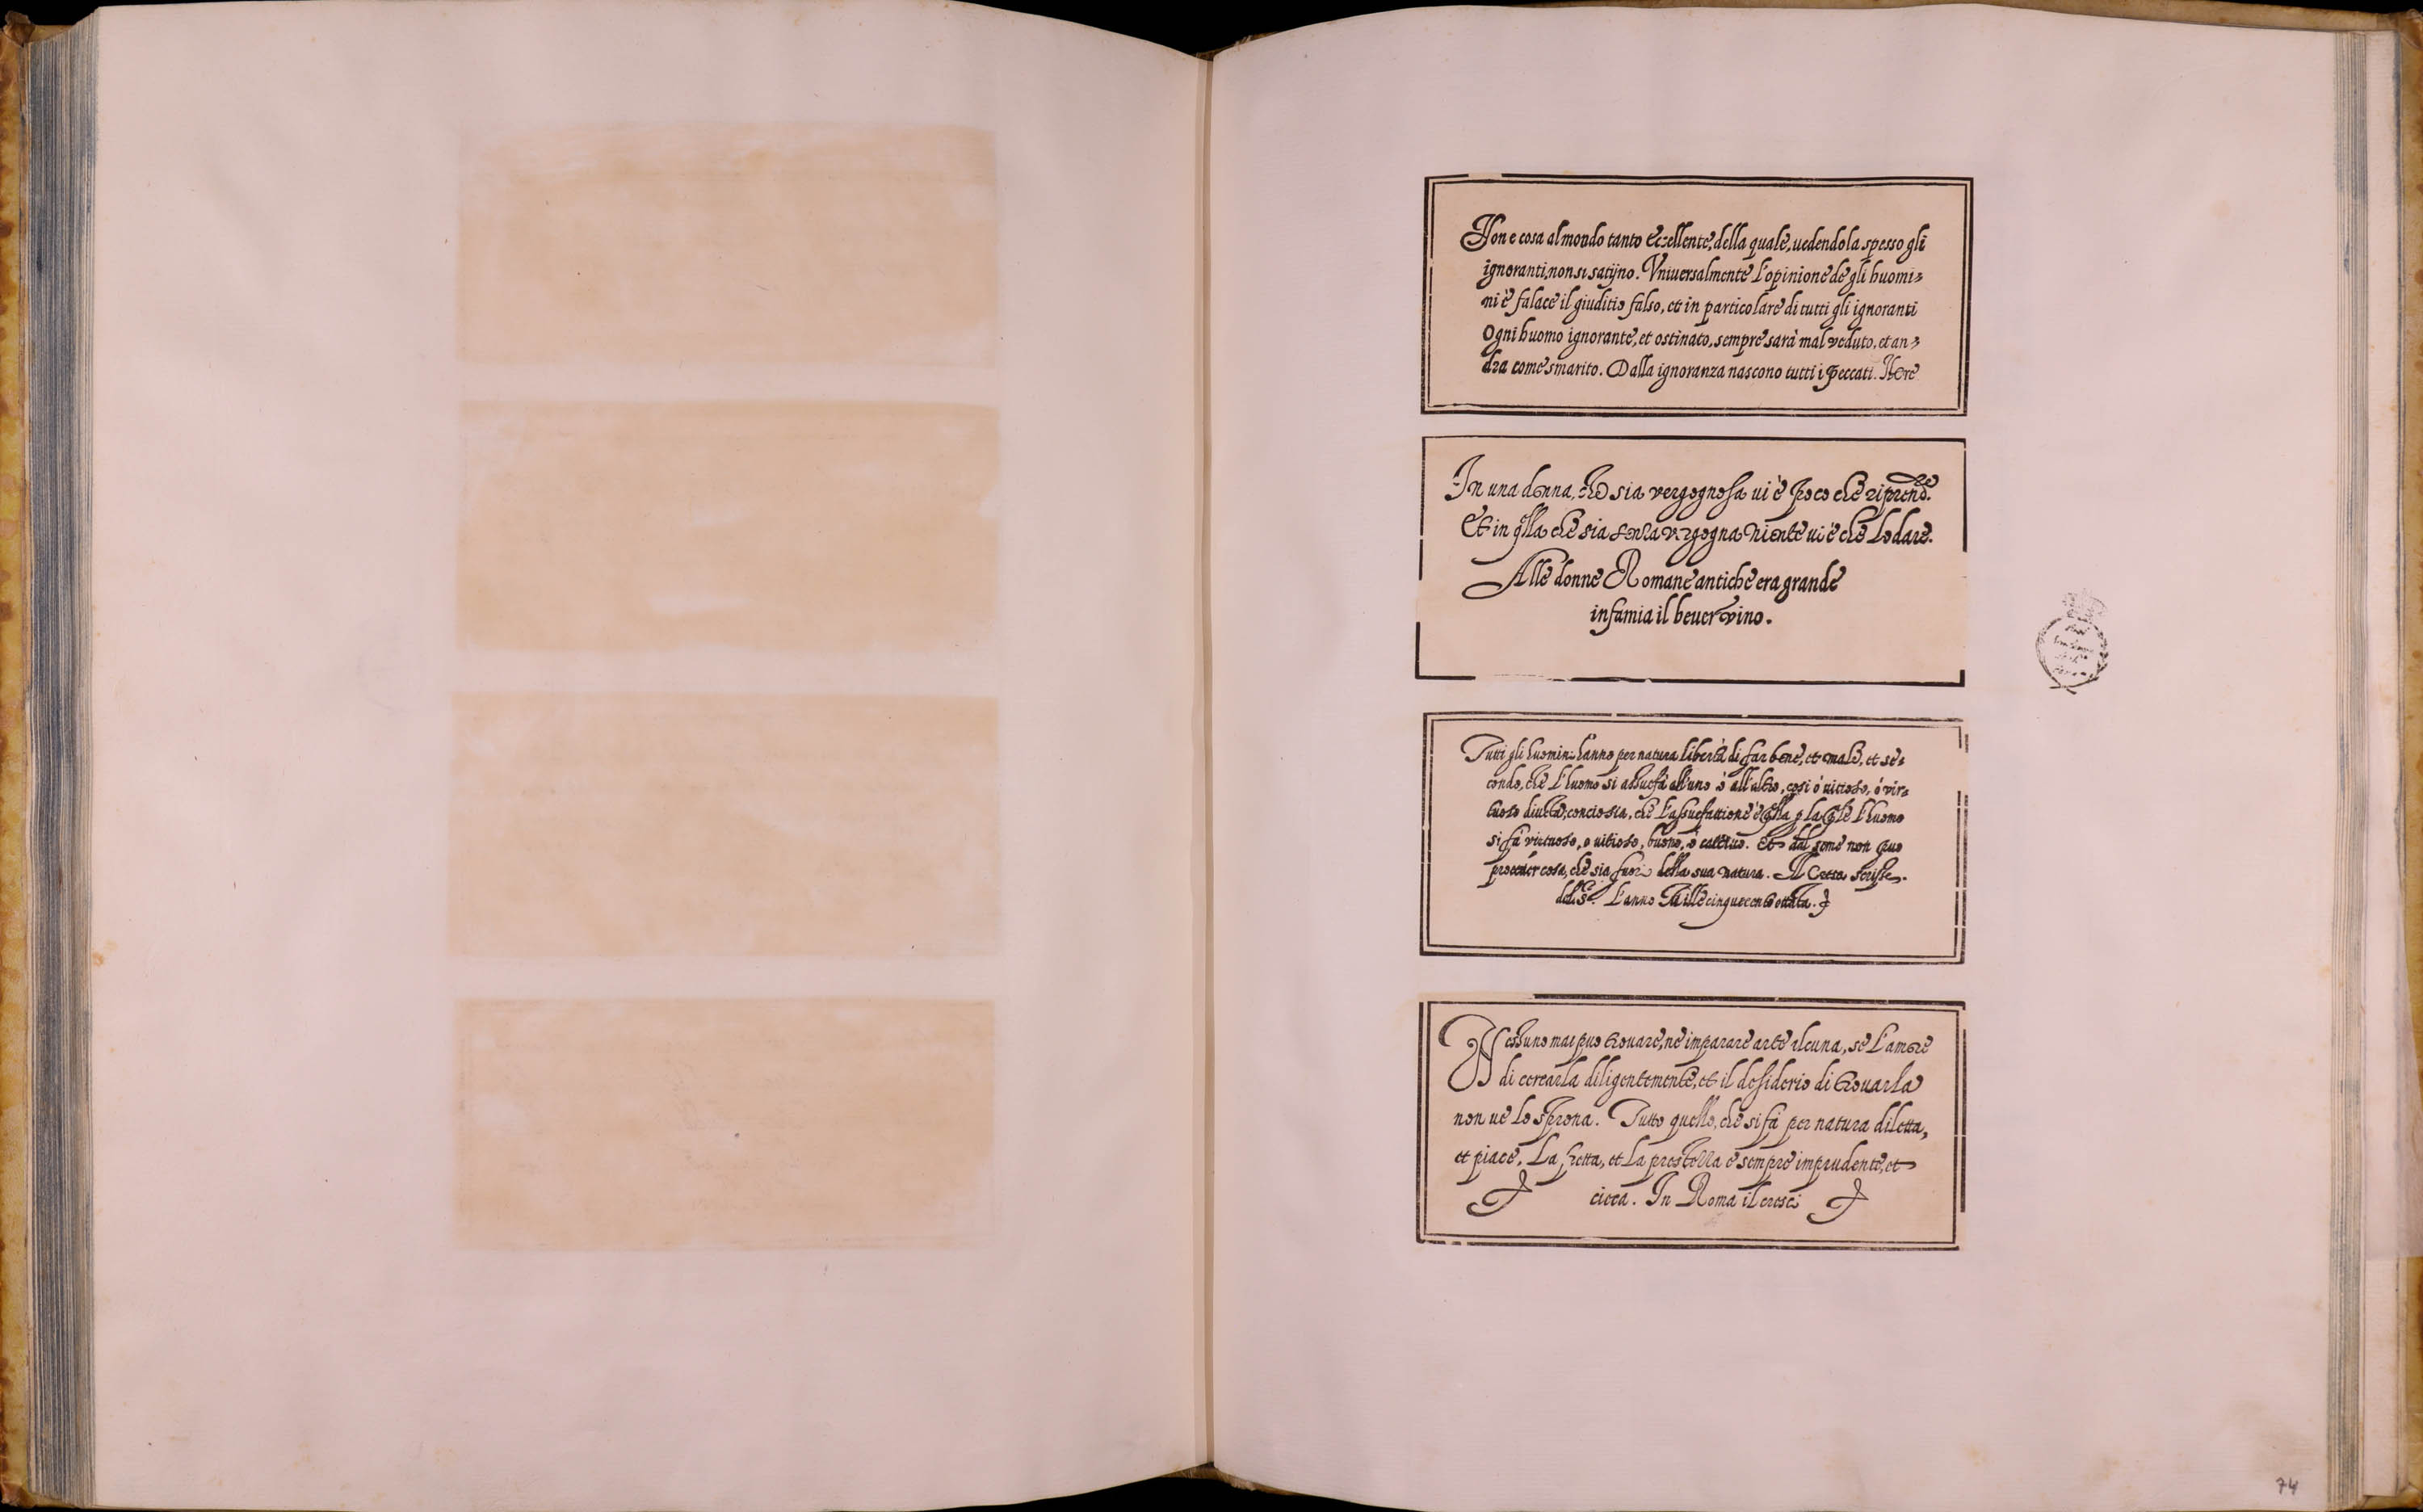 Non e cosa al mondo tanto Eccellente, della quale, uedendola spesso gli
ignoranti, non si satijno. Vniuersalmente l'opinione de gli huomi=
ni è falace il giuditio falso, et in particolare di tutti gli ignoranti
Ogni huomo ignorante, et ostinato, sempre sarà mal veduto, et an=
dra come smarito. Dalla ignoranza nascono tutti i peccati.
In una donna, che sia vergognosa ui è poco che riprendere.
Et in qlla che sia senza vergogna niente ui è che lodare.
Alle donne Romane antiche era grande
infamia il beuer vino.
Tutti gli huomini hanno per natura libertà di far bene, et male, et se=
condo, che l'huomo si assuefà all'uno ò all'altro, cosi ò uitioso, ò vir=
tuoso diuēta, conciosia, che l'assuefattione è qlla p la qle l'huomo
si fà virtuoso, o uitioso, buono, ò cattiuo. Et dal seme non puo
proceder cosa, che sia fuori della sua natura. Il Cresci scriss.
L'anno Mille cinquecento ottāta.
Nessuno mai puo trouare, ne imparare arte alcuna, se l'amore
di cercarla diligentemente, et il desiderio di trouarla
non ue lo sprona. Tutto quello, che si fà per natura diletta,
et piace. La fretta, et la prestezza e sempre imprudente, et
cieca. In Roma il cresci
74